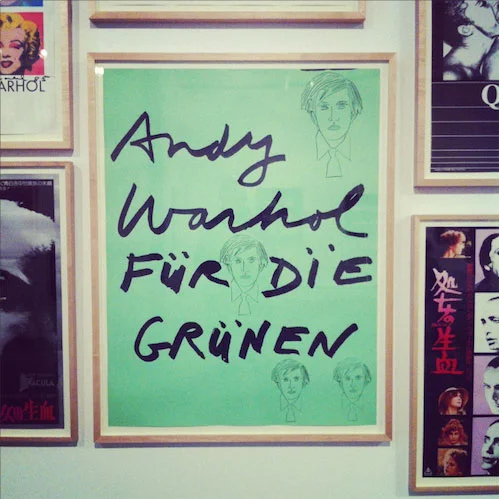 ARHOL
Andy
Warhol
FÜR DÏE
GRÜNEN
Q
処女の生血
女の生血